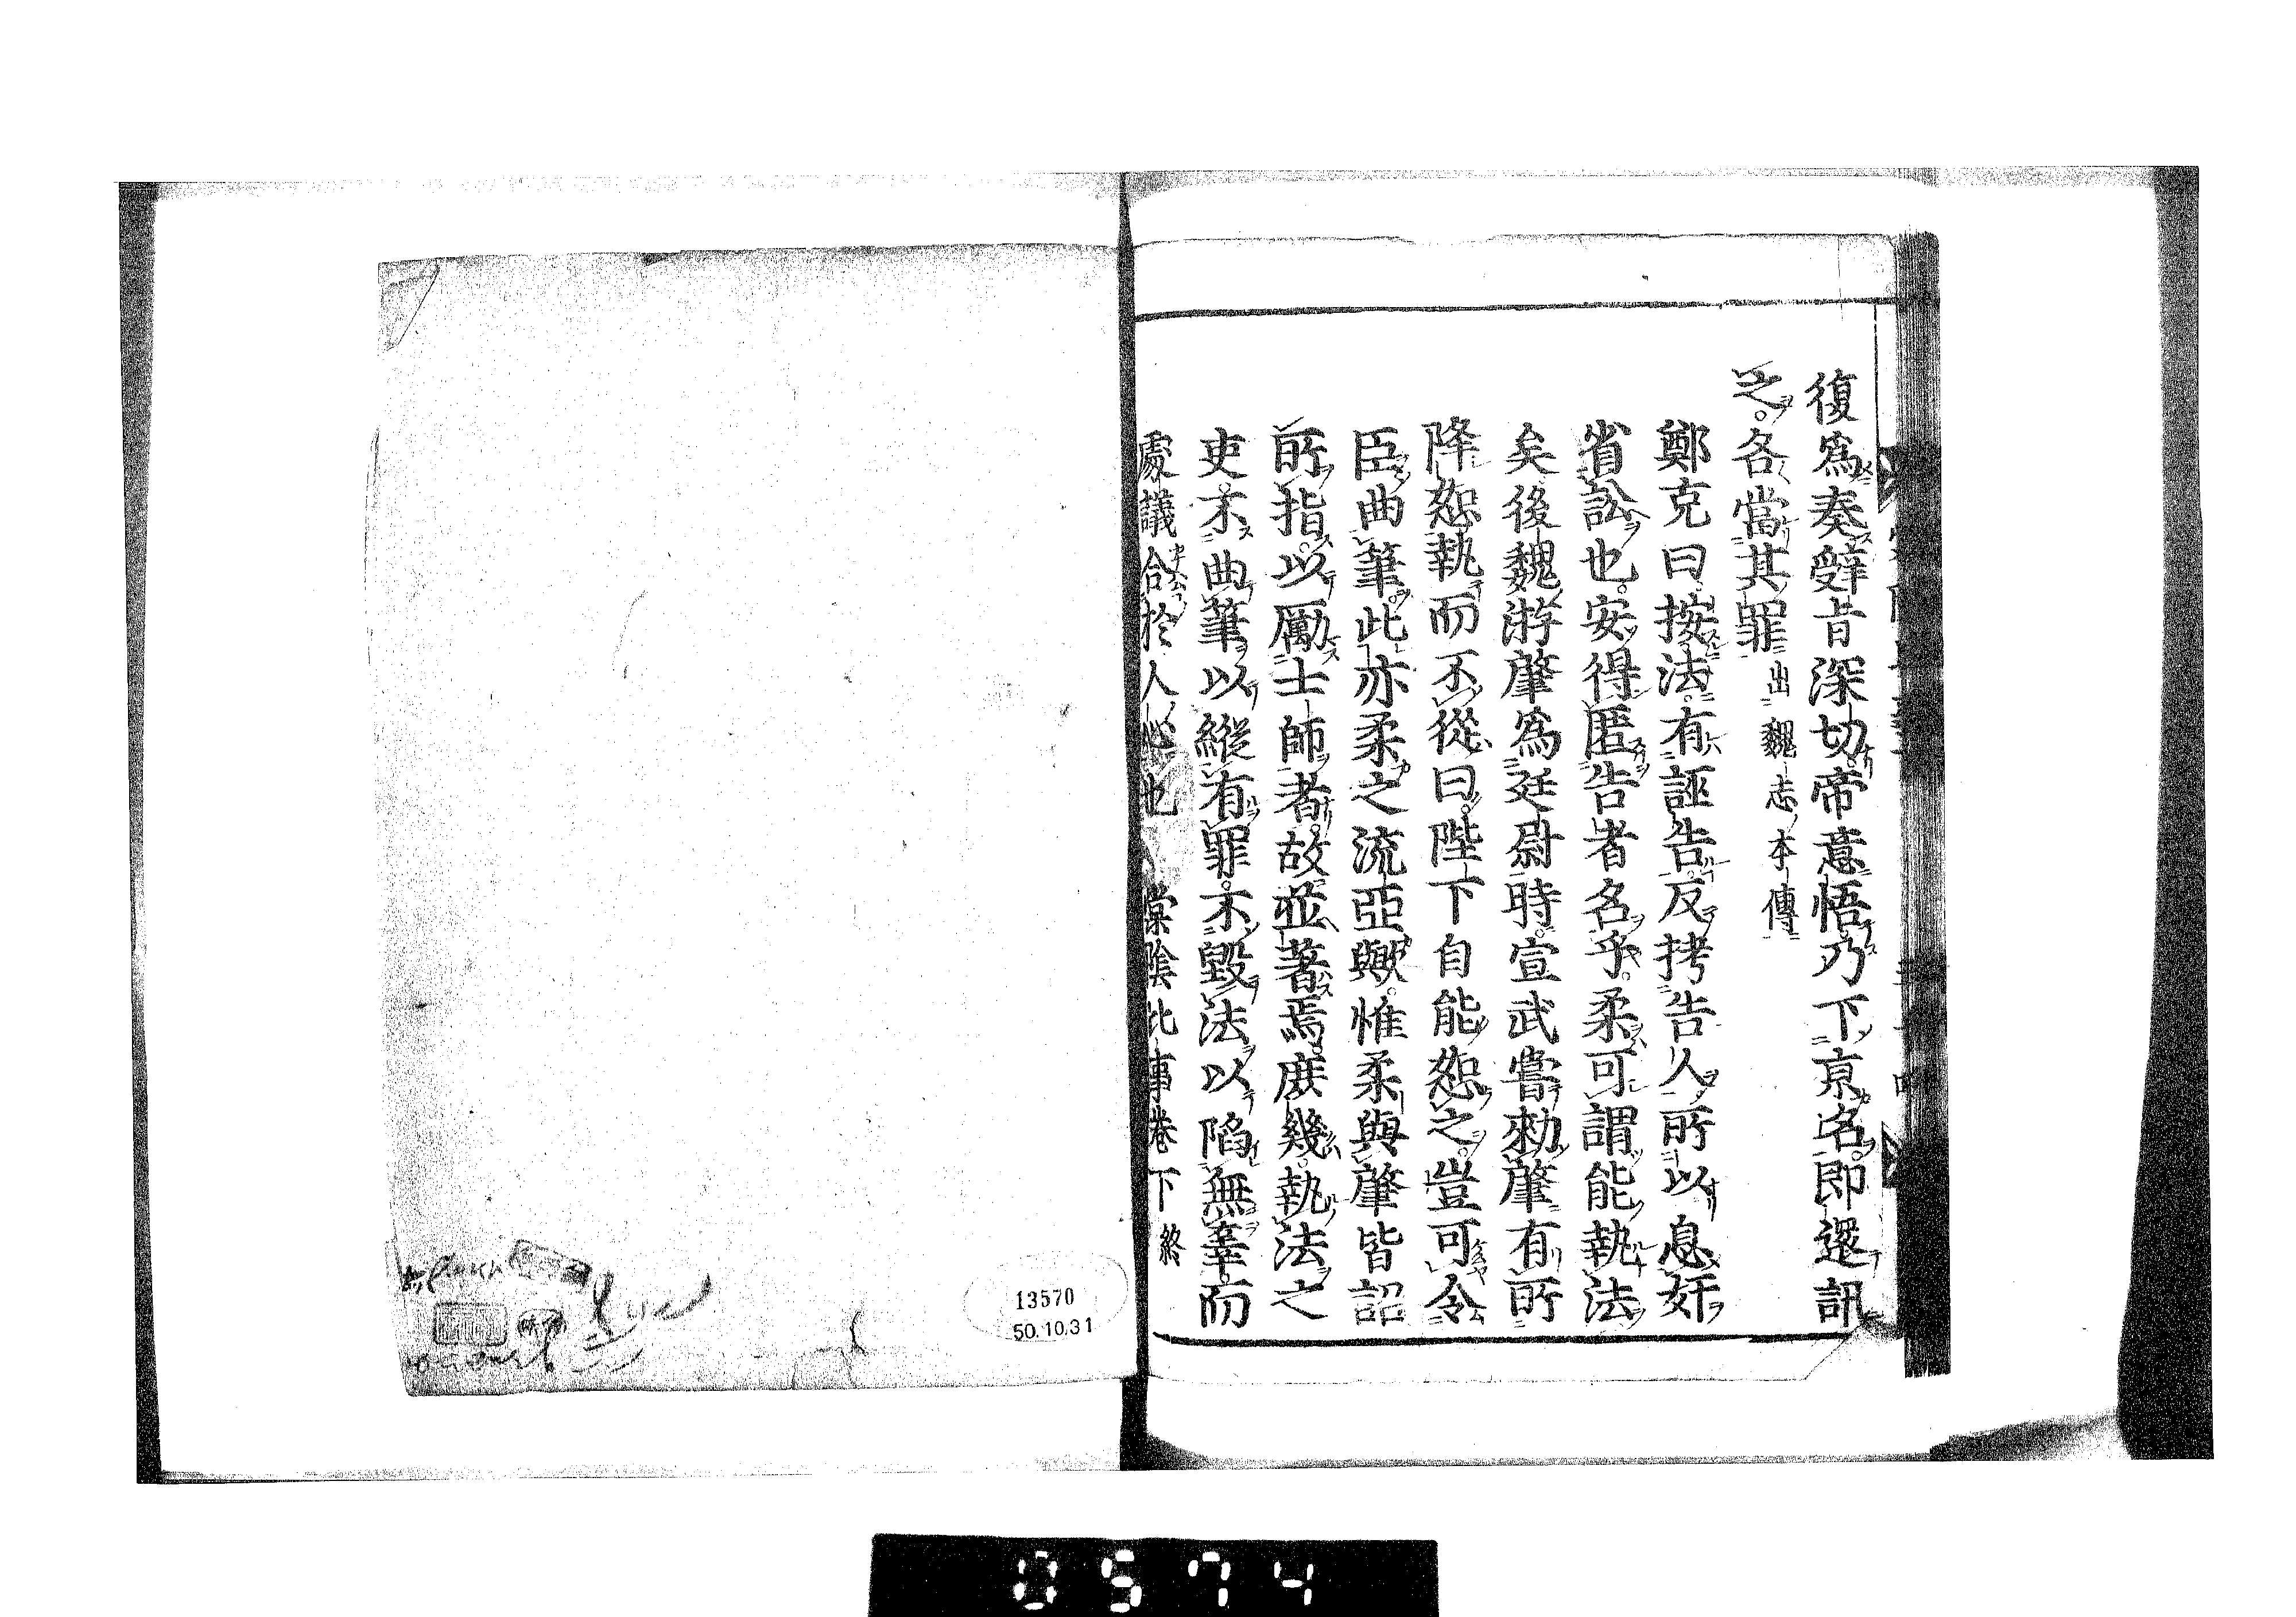 復爲奏辭旨深切帝意悟乃下京名即還訊
之各當其罪出魏志本傳
鄭克曰按法有誣告反拷告人所以息奸
省訟也安得匿告者名乎柔可謂能執法
矣後魏游肇爲廷尉時宣武嘗勑肇有所
降恕執而不從曰陛下自能恕之豈可令
臣曲筆此亦柔之流亞歟惟柔與肇皆詔
所指以厲士師者故並著焉庶幾執法之
吏不曲筆以縱有罪不毀法以陷無辜而
處議合於人心也 棠陰比事卷下終
13570
50.10.31
0574